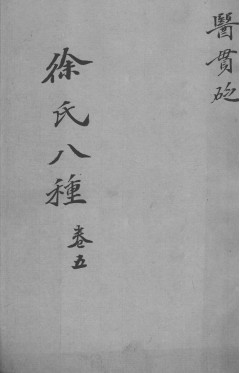 醫貫砭
徐氏八種 卷五